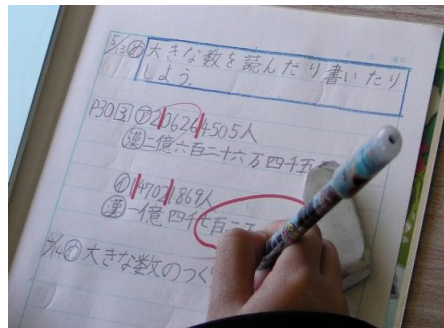 5/3 ㋔ 大きな数を読んだり書いたり
しよう。
P30 3 ㋐ 206264505人
漢 二億六百二十六万四千五
㋑ 147021869人
漢 一億四千七百二
5/14 大きな数のつく